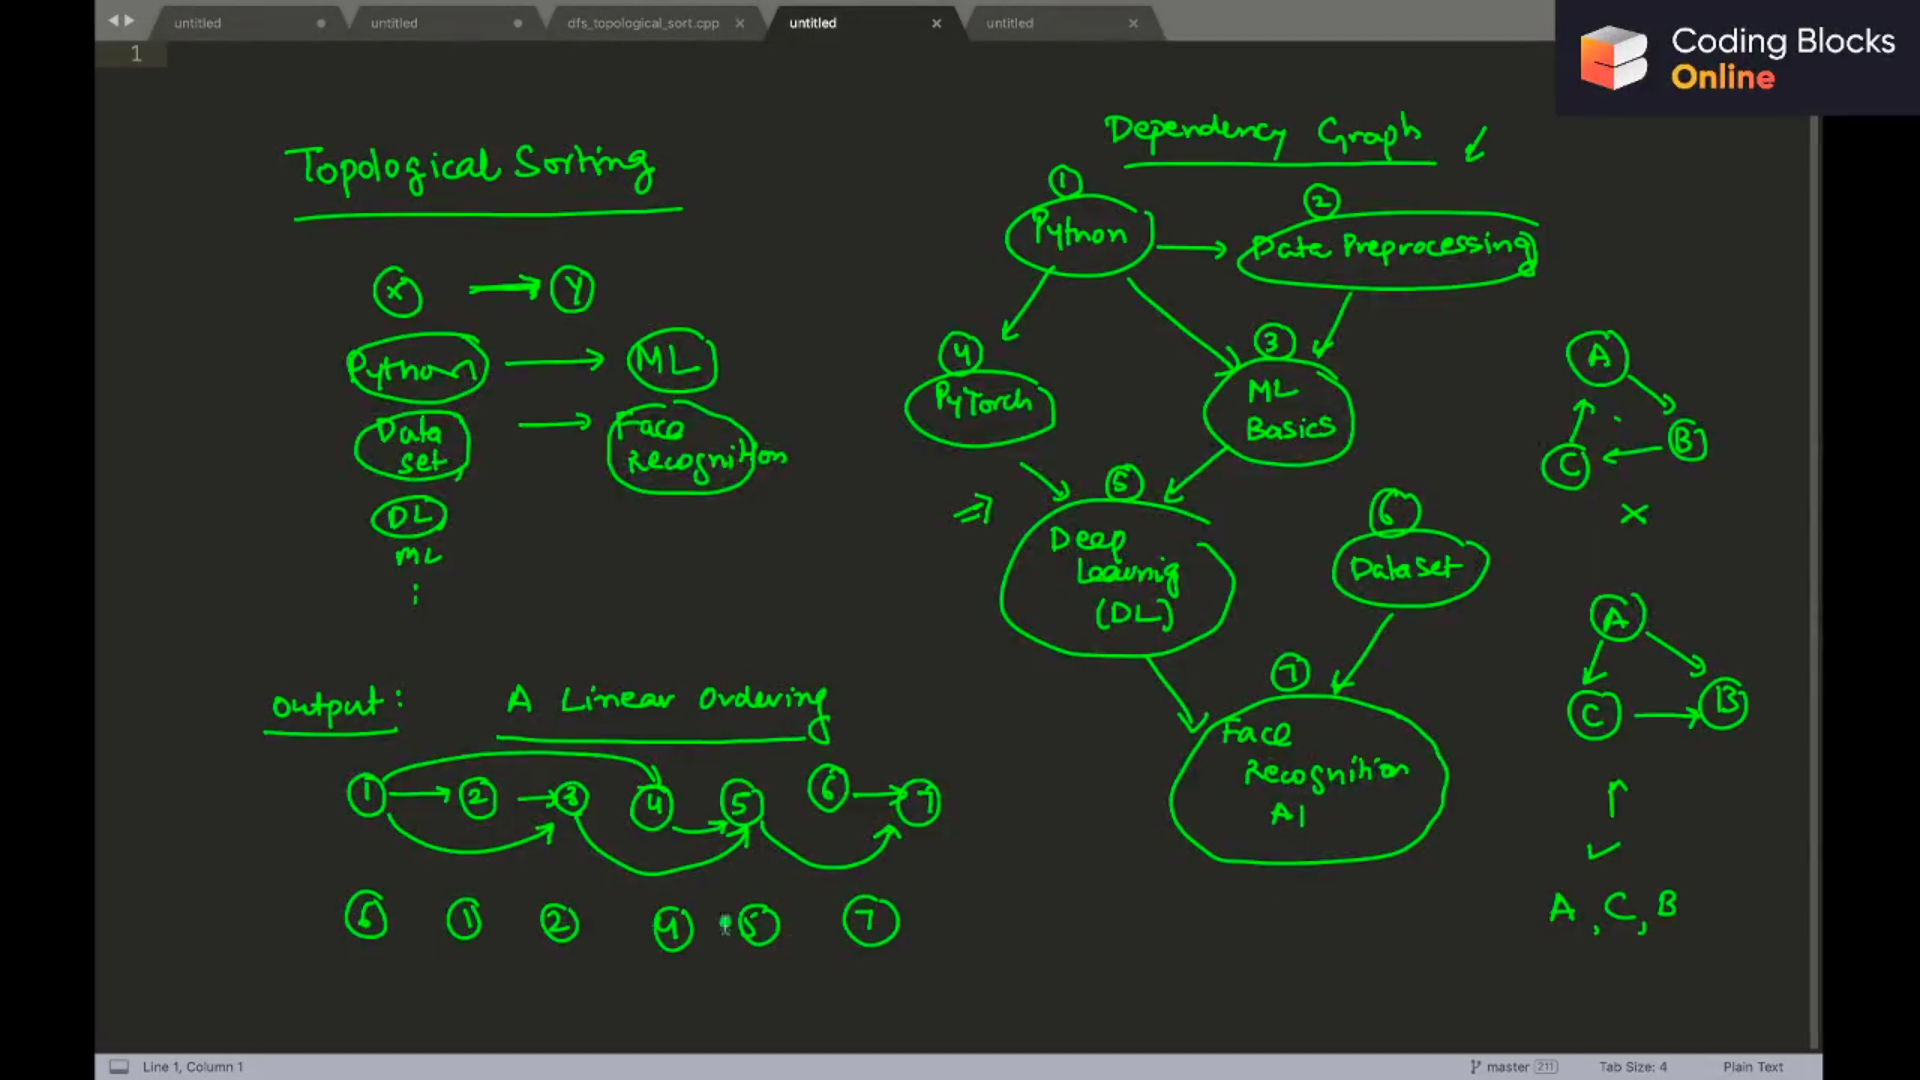 untitled
untitled
dfs_topological_sort.cpp
untitled
untitled
Coding Blocks
Online
1
Topological Sorting
X → Y
Python → ML
Data set → Face Recognition
DL
ML
:
Output: A Linear Ordering
1 2 3 4 5 6 7
6 1 2 4 5 7
Dependency Graph
1
Python
2
Data Preprocessing
4
PyTorch
3
ML
Basics
5
Deep
Learning
(DL)
6
Dataset
7
Face
Recognition
AI
A
B
C
X
A
C
B
A, C, B
Line 1, Column 1
master 211
Tab Size: 4
Plain Text